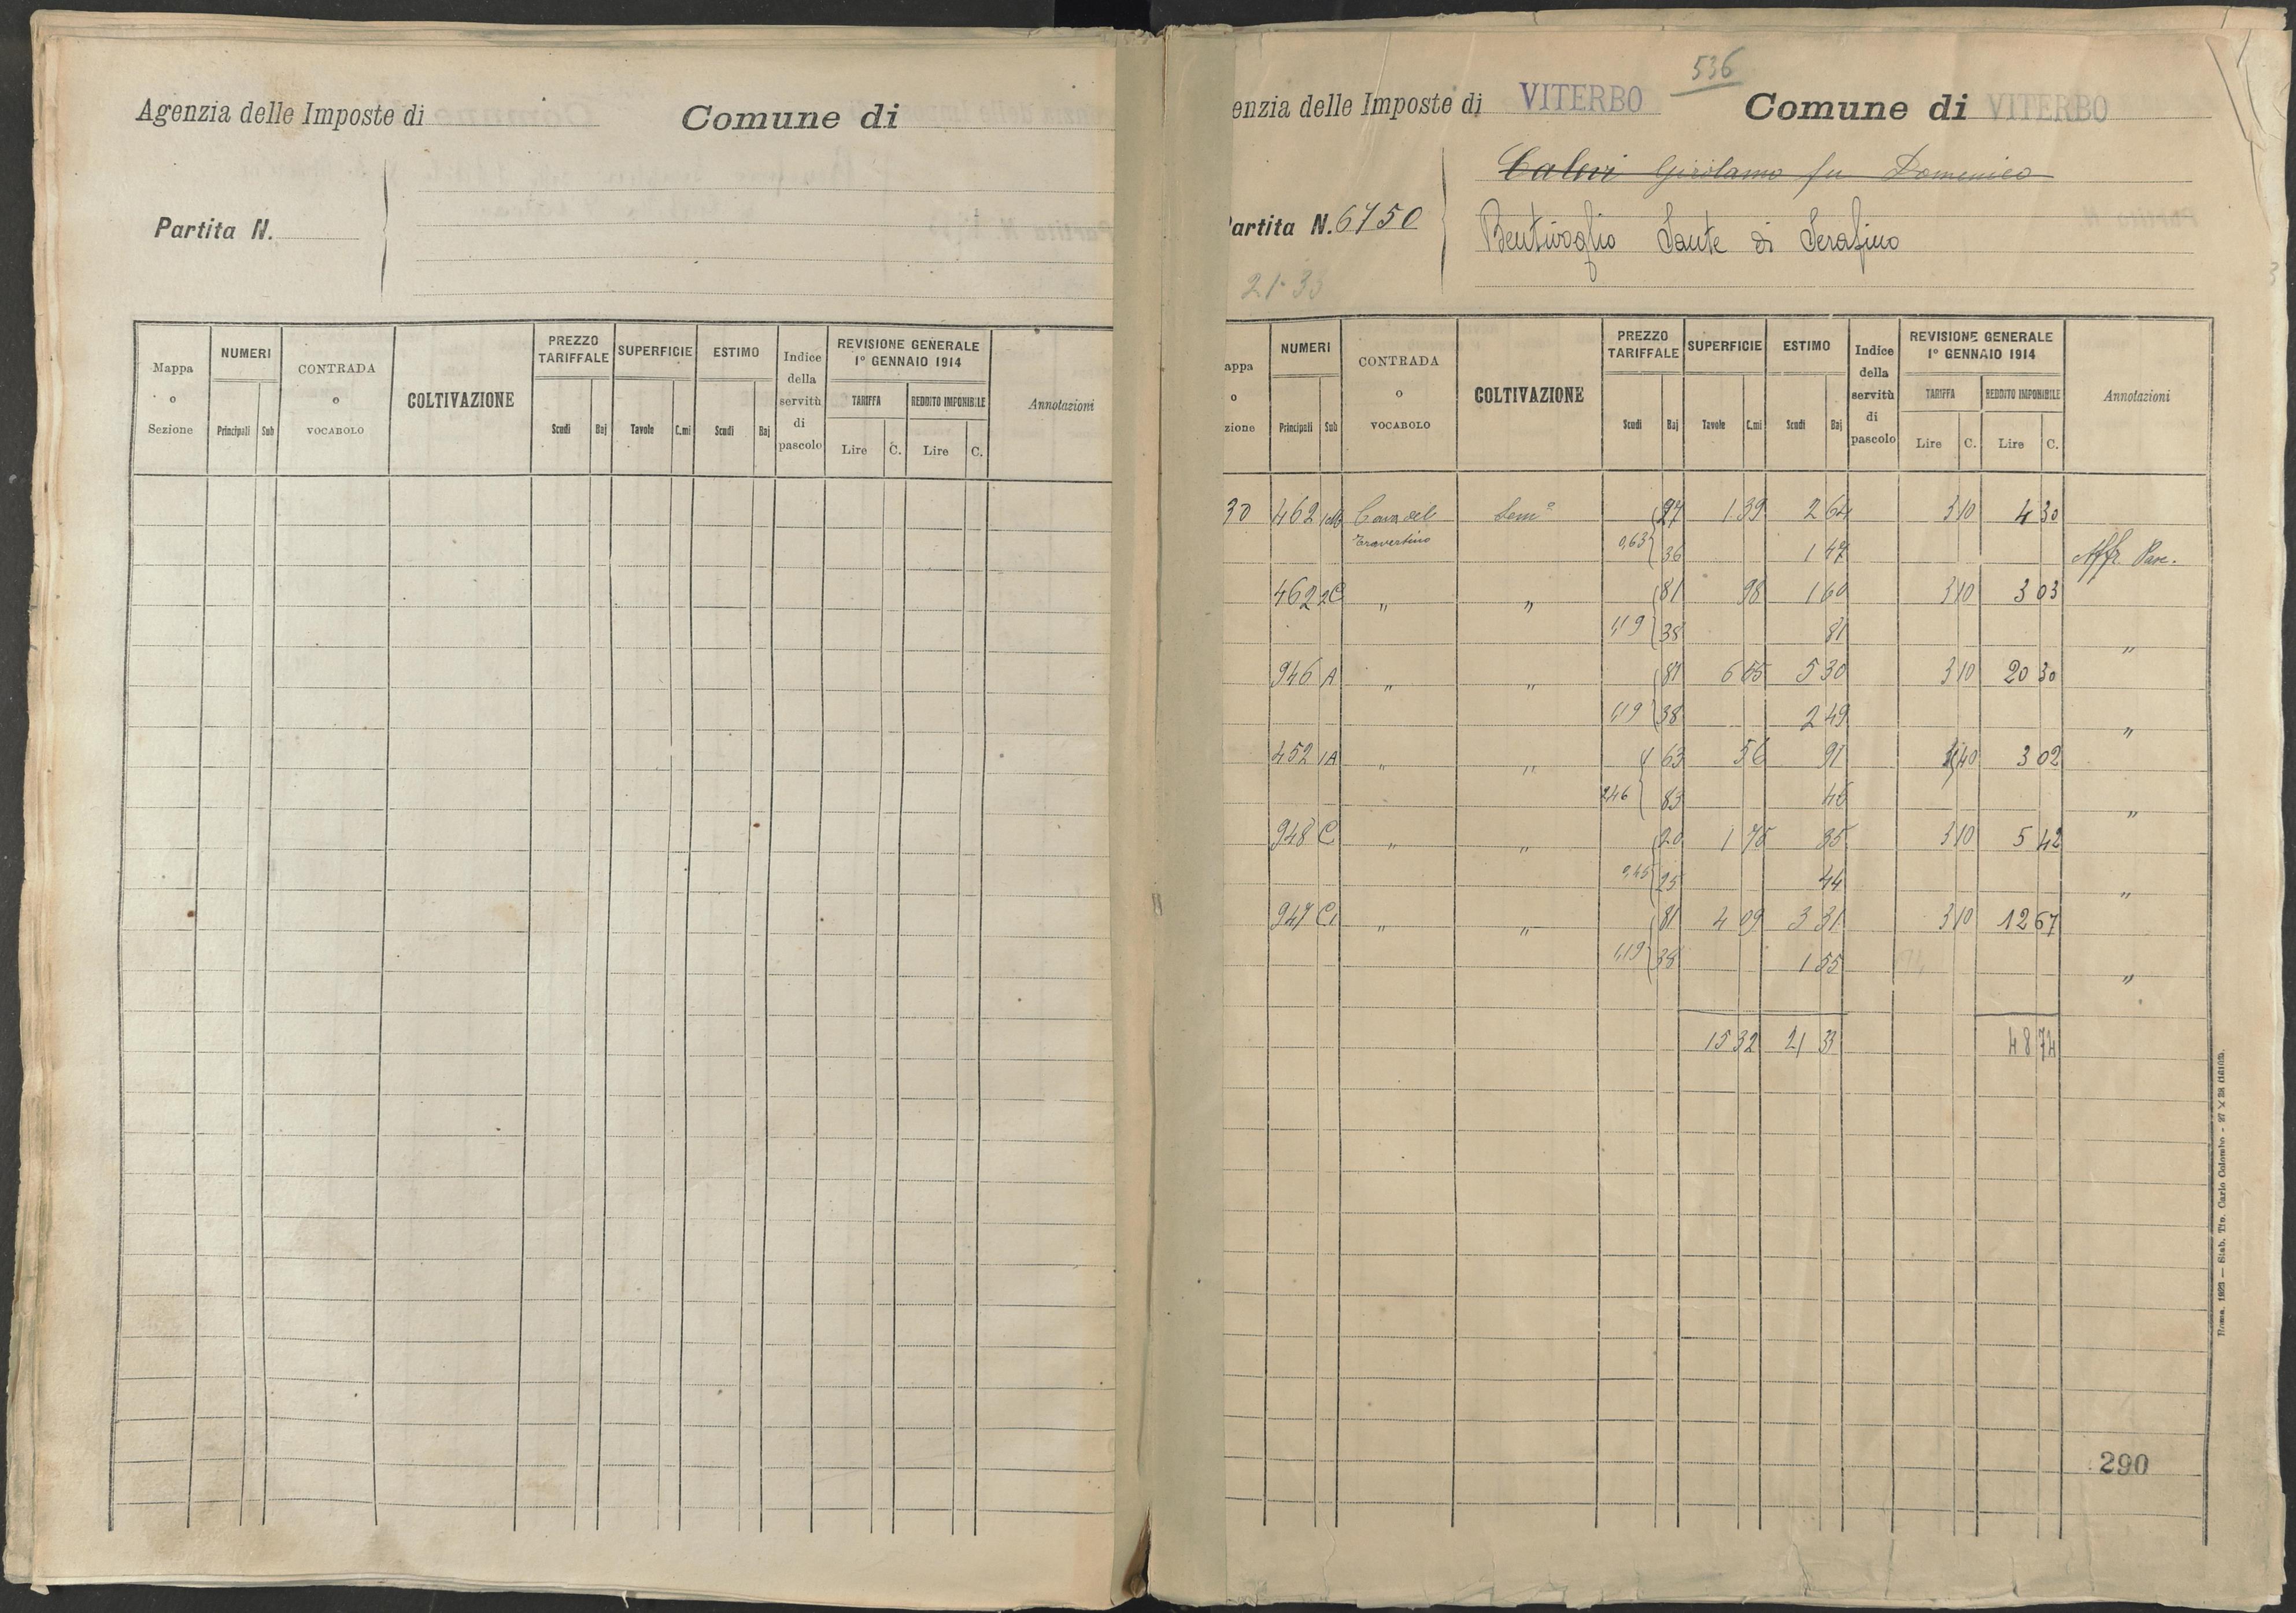 Agenzia delle Imposte di
Comune di
Partita N.
Mappa o Sezione
NUMERI
Principali Sub
CONTRADA o VOCABOLO
COLTIVAZIONE
PREZZO TARIFFALE
Scudi Baj
SUPERFICIE
Tavole C.mi
ESTIMO
Scudi Baj
Indice della servitù di pascolo
REVISIONE GENERALE
1° GENNAIO 1914
TARIFFA REDDITO IMPONIBILE
Lire C. Lire C.
Annotazioni
536
enzia delle Imposte di VITERBO
Comune di VITERBO
Calevi Girolamo fu Domenico
artita N. 6750
Bentivoglio Sante di Serafino
21-33
appa o zione
NUMERI
Principali Sub
CONTRADA o VOCABOLO
COLTIVAZIONE
PREZZO TARIFFALE
Scudi Baj
SUPERFICIE
Tavole C.mi
ESTIMO
Scudi Baj
Indice della servitù di pascolo
REVISIONE GENERALE
1° GENNAIO 1914
TARIFFA REDDITO IMPONIBILE
Lire C. Lire C.
Annotazioni
30 462 Cava del Semo 27 1 39 2 64 3 10 4 30
Travertino 0,63 36 1 47 Affr. Pasc.
462 2C " " 81 98 1 60 3 10 3 03
1,19 38 81 "
946 A " " 81 6 55 5 30 3 10 20 30
1,19 38 2 49 "
452 1A " " 1 63 56 91 40 3 02
2,46 83 46 "
948 C " " 20 1 75 35 3 10 5 42
0,45 25 44 "
947 C1 " " 81 4 09 3 31 3 10 12 67
1,19 38 1 55 "
15 32 21 33 48 74
290
Roma, 1923 — Stab. Tip. Carlo Colombo - 27 × 38